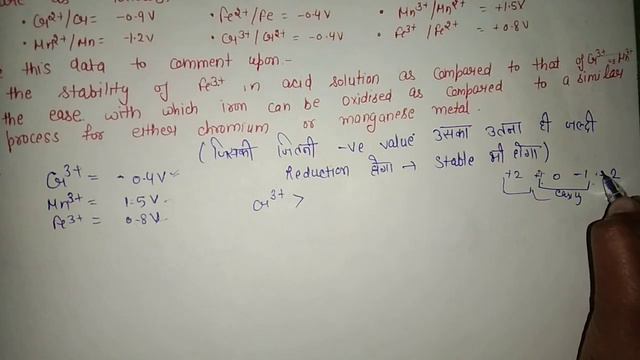 • Cr²⁺/Cr = -0.9V • Fe²⁺/Fe = -0.4V • Mn³⁺/Mn²⁺ = +1.5V
• Mn²⁺/Mn = -1.2V • Cr³⁺/Cr²⁺ = -0.4V • Fe³⁺/Fe²⁺ = +0.8V
this data to comment upon.-
the stability of Fe³⁺ in acid solution as compared to that of Cr³⁺ Mn³⁺
the ease with which iron can be oxidised as compared to a similar
process for either chromium or manganese metal.
(जिसकी जितनी -ve value उसका उतना ही जल्दी
Reduction होगा → stable भी होगा)
Cr³⁺ = -0.4V
Mn³⁺ = 1.5V
Fe³⁺ = 0.8V
Cr³⁺ >
+2 0 -1 2
easy